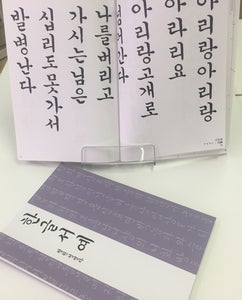 아리랑아리랑
아라리요
아리랑고개로
넘어간다
나를버리고
가시는님은
십리도못가서
발병난다
한글서예